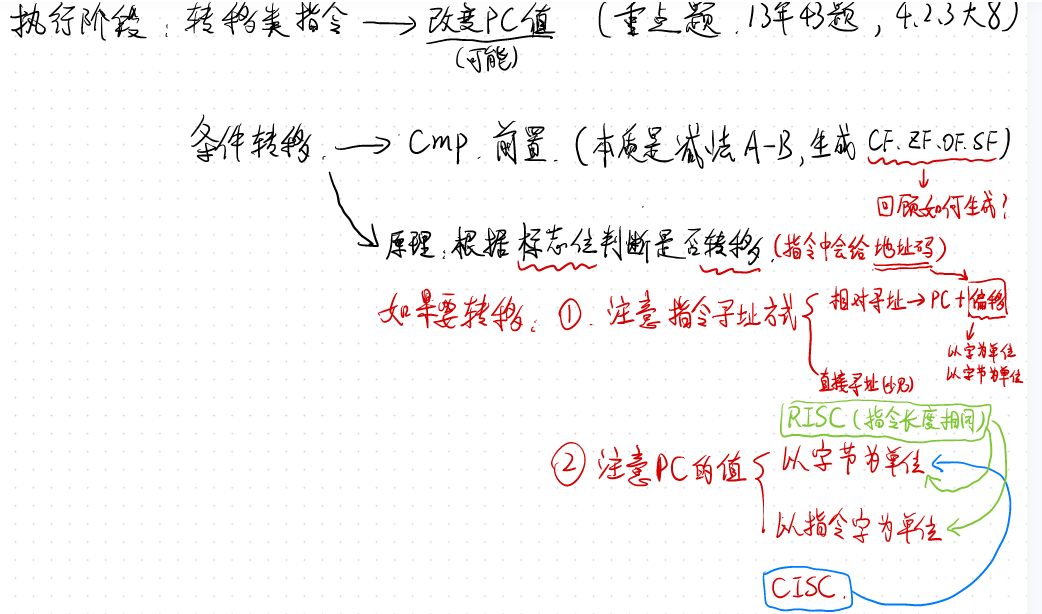 执行阶段：转移类指令 → 改变PC值 （重点题.13年43题，4.2.3大8）
(可能)
条件转移. → Cmp.前置.(本质是减法A-B,生成CF.ZF.OF.SF)
回顾如何生成？
原理：根据标志位判断是否转移.(指令中会给地址码)
如果要转移：①.注意指令寻址方式
相对寻址→PC+偏移
以字为单位
以字节为单位
直接寻址(少见)
RISC(指令长度相同)
②注意PC的值
以字节为单位
以指令字为单位
CISC.